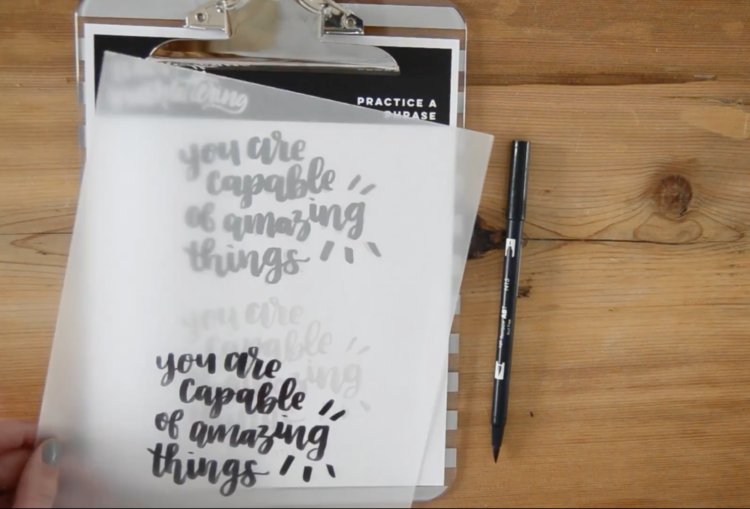 lettering
PRACTICE A
PHRASE
you are
capable
of amazing
things
you are
capable
of amazing
things
you are
capable
of amazing
things